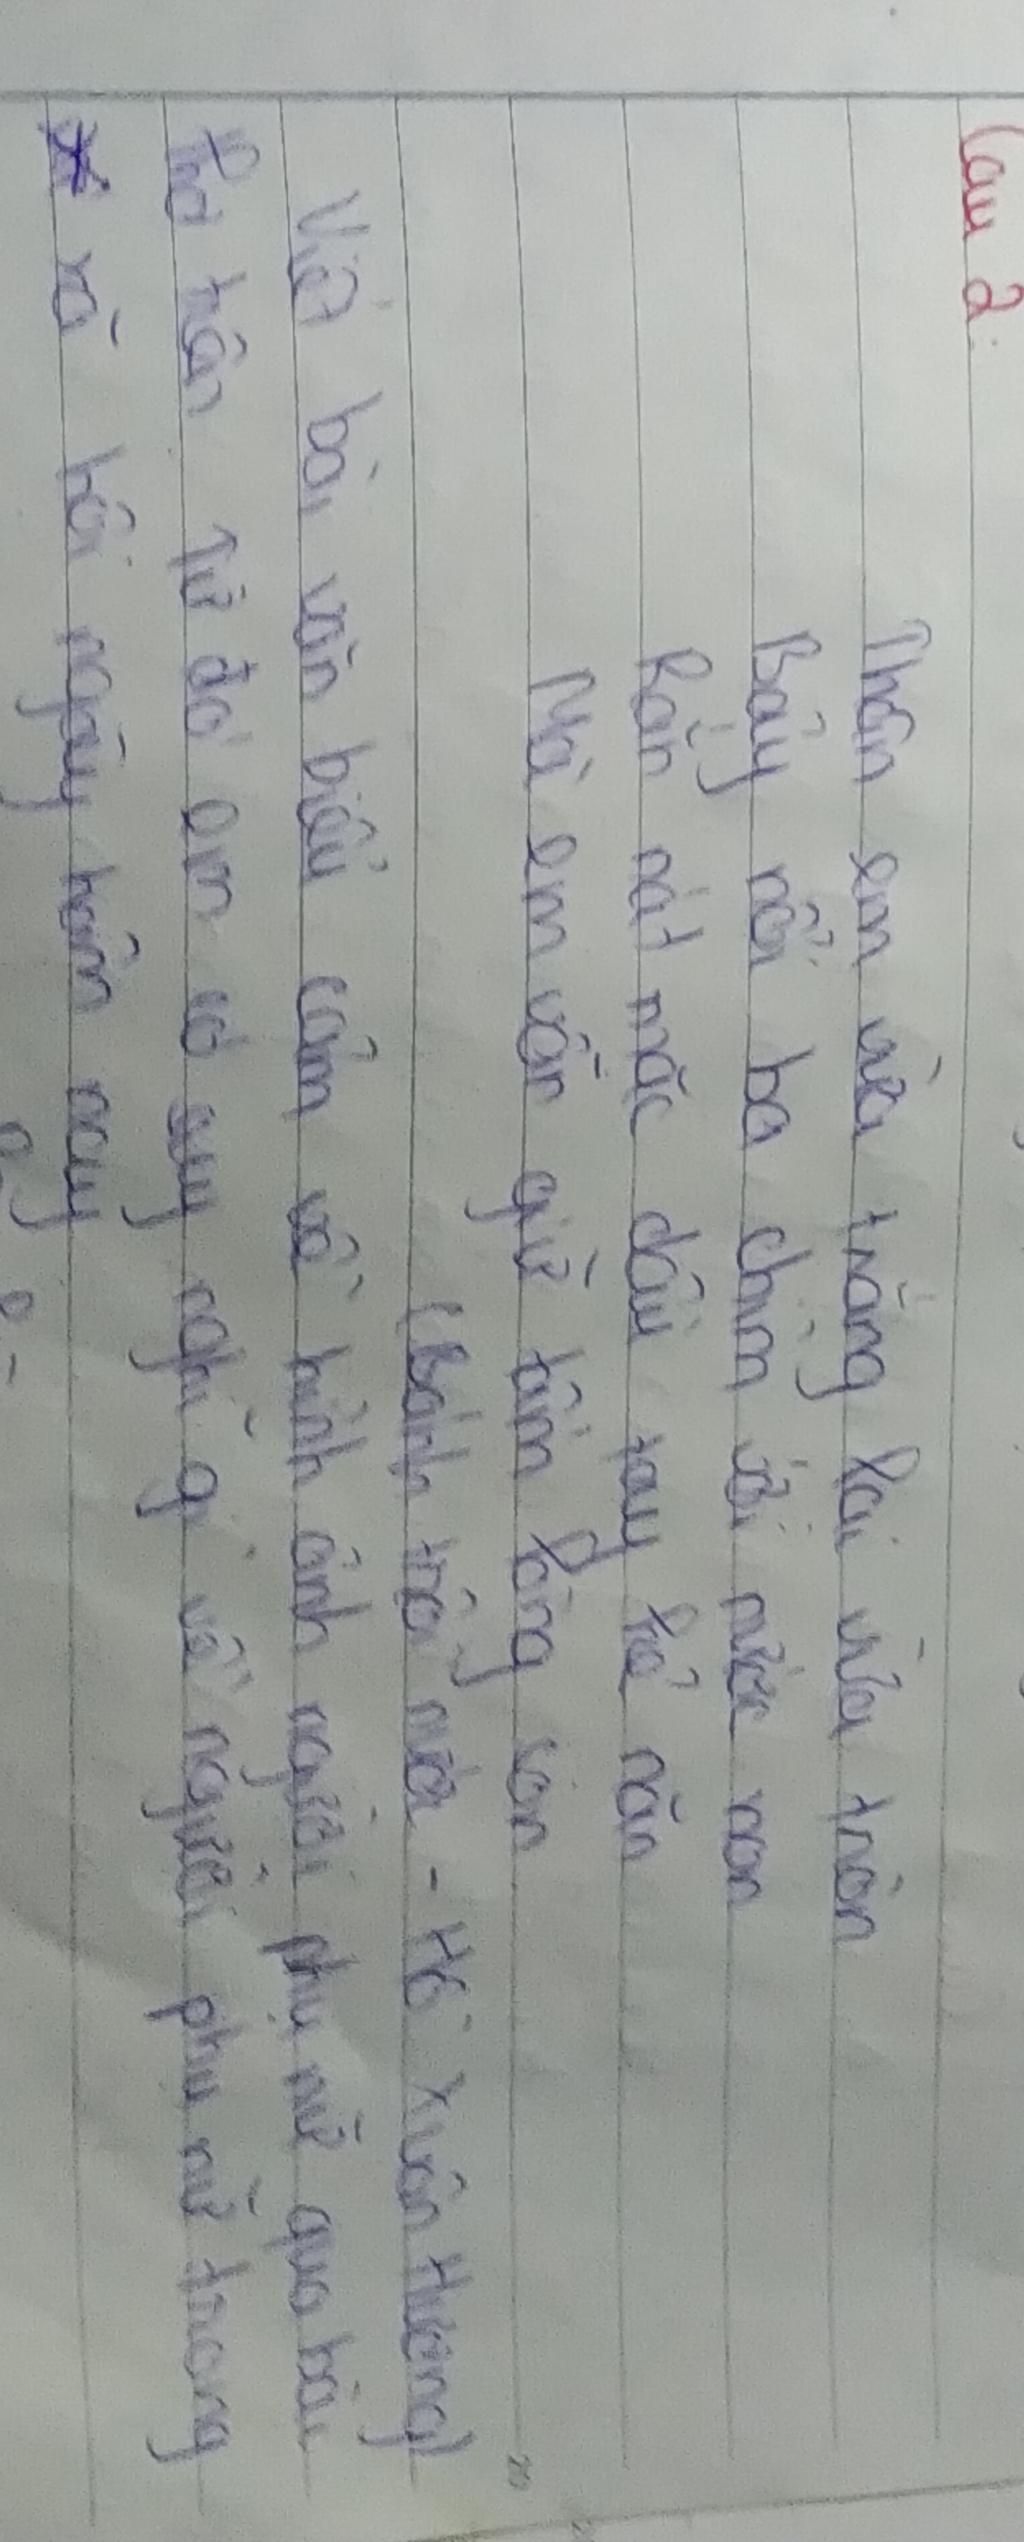 Câu 2:
Thân em vừa trắng lại vừa tròn
Bảy nổi ba chìm với nước non
Rắn nát mặc dầu tay kẻ nặn
Mà em vẫn giữ tấm lòng son
(Bánh trôi nước - Hồ Xuân Hương)
Viết bài văn biểu cảm về hình ảnh người phụ nữ qua bài
thơ trên Từ đó em có suy nghĩ gì về người phụ nữ trong
xã hội ngày hôm nay